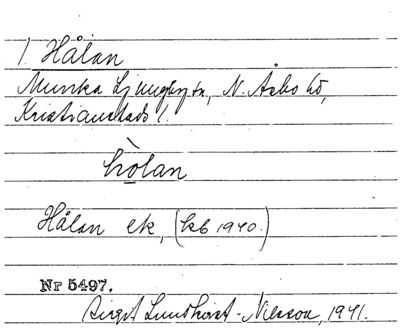 1. Hålan
Munka Ljungby sn, N. Åsbo hd,
Kristianstads l.
hòlan
Hålan ek, (kb 1940.)
Nr 5497.
Birgit Lundhorst-Nilsson, 1941.